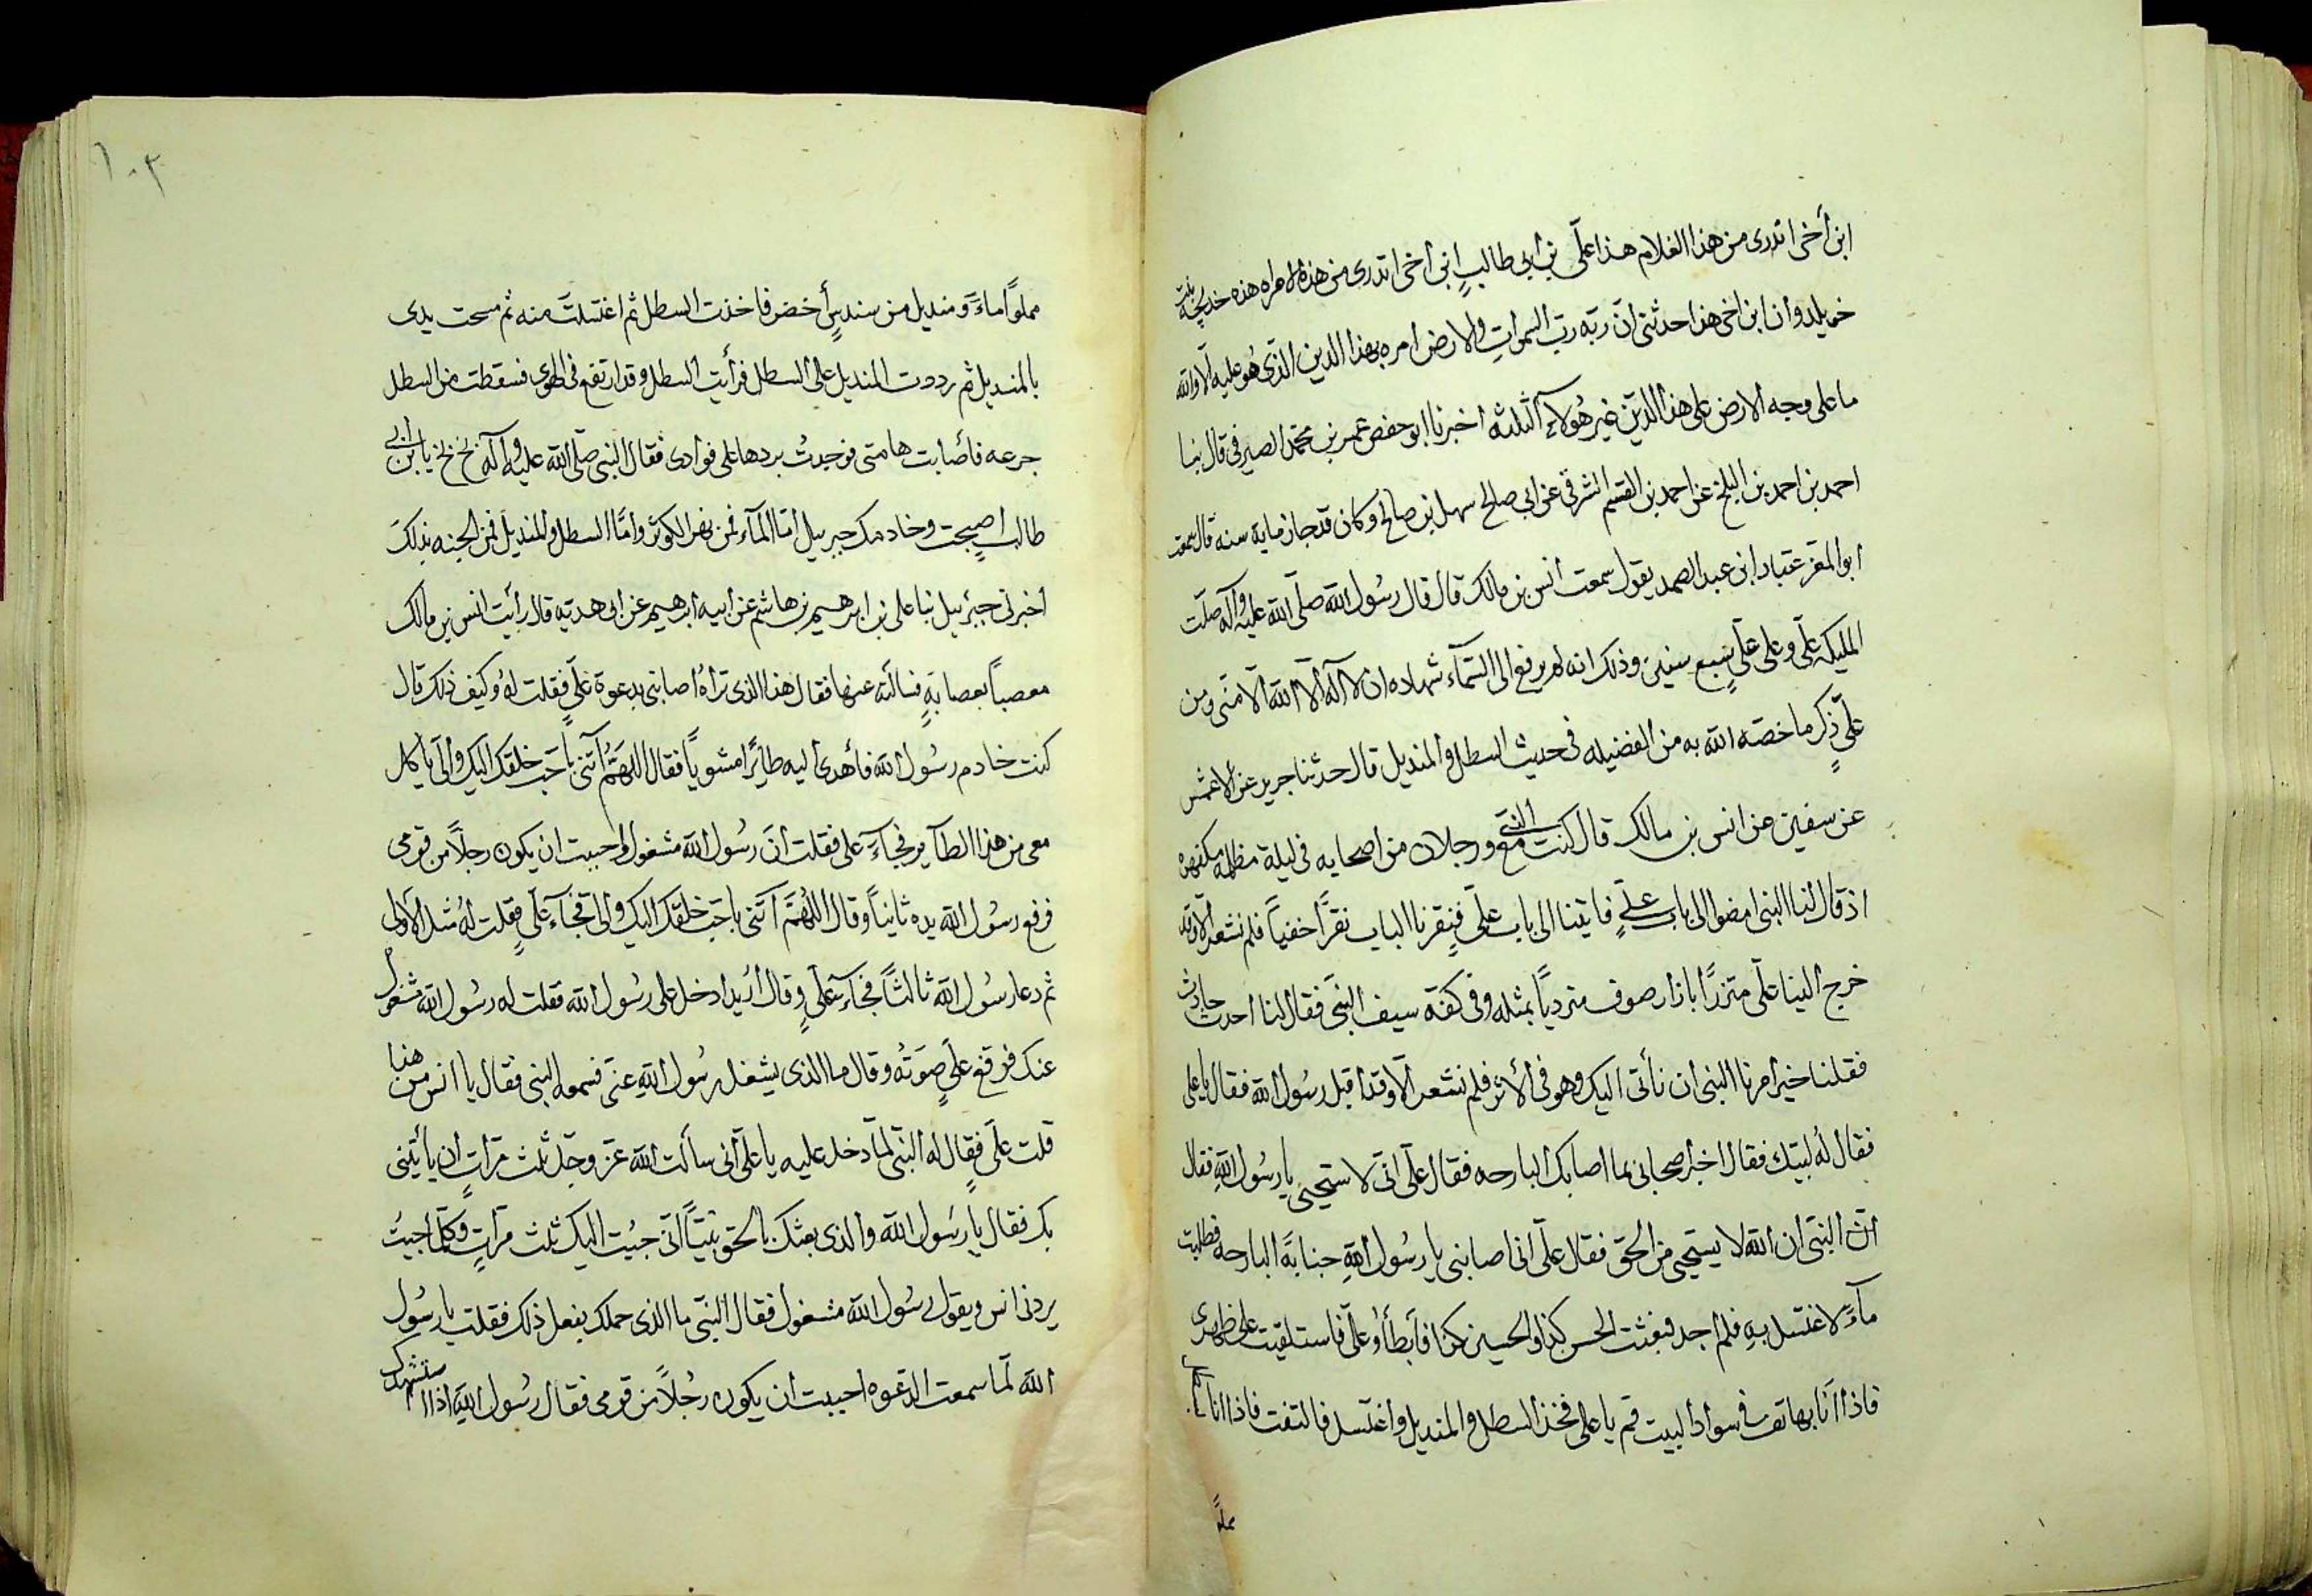 ابن أخى اتدرى من هذا الغلام هذا علّى بن ابى طالبٍ ابنى أخى اتدرى من هذه الامراه هذه خديجه بنت
خويلد وان ابن اخى هذا حدثنى انّ ربّه ربّ السموات والارض امره بهذا الدين الذّى هُو عليه لا والله
ما على وجه الارض على هذا الدّين غير هُولآء الثلثه اخبرنا ابو حفص عمر بن محمّد الصيرفى قال نبا
احمد بن احمد بن البلخ عن احمد بن القسم الشرقى عن ابى صالح سهل بن صالح وكان قد جاز مايه سنه قال سمعت
ابو المعمر عتباد ابن عبد الصمد يقول سمعت أنس بن مالك قال قال رسُول الله صلّى الله عليه وآله صلّت
المليكه علّى وعلى علّىٍ سبع سنين وذلك انه لم يرفع الى السّمآء شهاده ان لا آله الاّ الله الاّ منّى ومن
علّىٍ ذكر ما خصّه الله به من الفضيله فى حديث السطل والمنديل قال حدّثنا جرير عن الاعمش
عن سفين عن انس بن مالك قال كنت مع النبى ورجلان من اصحابه فى ليلة مظلمه مكفهره
اذ قال لنا النبى امضوا الى باب علّىٍ فاتينا الى باب علّىٍ فنقرنا الباب نقرًا خفياً فلم نشعر الا وقد
خرج الينا علّى متزرًا بازار صوف مترديًا بمثله وفى كفّه سيف النبّى فقال لنا احدث حادث
فقلنا خير امرنا النبى ان نأتى اليك وهو فى الأثر فلم نشعر الاّ وقد اقبل رسُول الله فقال يا على
فقال لهُ لبيّك فقال اخبر اصحابى بما اصابك البارحه فقال علّى انّى لا ستحيى يا رسُول اللهِ فقال
انّ النبّى ان الله لا يستحيى من الحق فقال علّى انى اصابنى يا رسُول اللهِ جنابةً البارحه فطلبت
مآءً لاغتسل بهِ فلم اجد فبعثت الحسن كذا والحسين كذا فأبطأُو علّى فاستلقيت على ظهرى
فاذا أنا بهاتف فى سواد البيت قم يا على فخذ السطل والمنديل واغتسل فالتفت فاذا انا
مملوًا
١٠٣
مملواً ماءً ومنديل من سندسٍ أخضر فاخذت السطل ثم اغتسلت منه ثم مسحت يدى
بالمنديل ثم رددت المنديل على السطل فرأيت السطل وقد ارتفع فى الهوى فسقطت من السطل
جرعه فأصابت هامتى فوجدت بردها على فوادى فقال النبى صلّى الله عليه وآله بخ بخ يا ابن ابى
طالب اصبحت وخادمك جبرييل امّا المآء فمن نهر الكوثر وامّا السطل والمنديل فمن الجنه بذلك
أخبرنى جبرئييل نبا على بن ابرهيم بن هاشم عن ابيه ابرهيم عن ابى هدبه قال رأيت انس بن مالك
معصباً بعصابةٍ فسالته عنها فقال هذا الذى تراهُ اصابنى بدعوة علّىٍ فقلت لهُ وكيف ذلك قال
كنت خادم رسُول الله فأهدى اليه طائرًا مشوياً فقال اللهمّ آتنى باحّب خلقك اليك والىّ يأكل
معى من هذا الطآير فجآء على فقلت انّ رسُول الله مشغول واحببت ان يكون رجلاً من قومى
فرفع رسُول الله يده ثانياً وقال اللهُمّ آتنى باحّب خلقك اليك والى فجآء علّىٍ فقلت لهُ مثل الأولى
ثم دعا رسُول الله ثالثاً فجآء علّىٍ وقال أريد ادخل على رسُول الله فقلت له رسُول الله مشغول
عنك فرفع علّىٍ صَوتهُ وقال ما الذى يشغل رسُول اللهِ عنّى فسمعه النبى فقال يا انس من هذا
قلت علّى فقال له النبّى لمّا دخل عليه يا علّى انّى سألت الله عزّ وجلّ ثلث مرّاتٍ ان يأتينى
بك فقال يا رسُول الله والذى بعثك بالحق نبيّاً انّى جيُت اليك ثلث مرّاتٍ وكلّما جيتُ
يردنى انس ويقول رسُول الله مشغول فقال النبّى ما الذى حملك بفعل ذلك فقلت يا رسُول
الله لمّا سمعت الدّعوه احببت ان يكون رجُلاً من قومى فقال رسُول اللهِ اذا